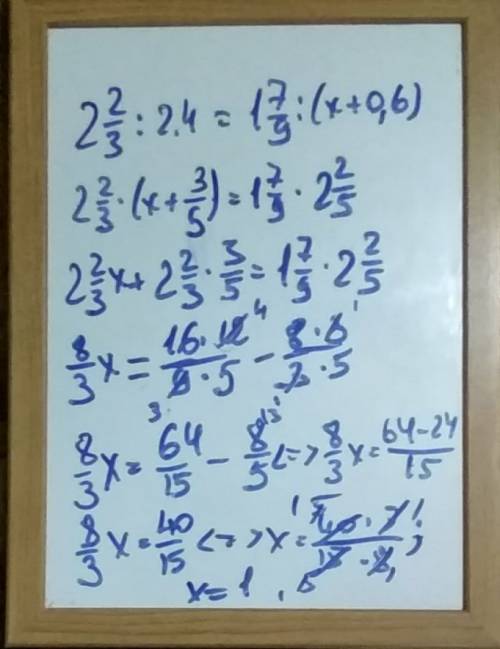 2 2/3 : 2.4 = 1 7/9 : (x+0,6)
2 2/3 · (x + 3/5) = 1 7/9 · 2 2/5
2 2/3 x + 2 2/3 · 3/5 = 1 7/9 · 2 2/5
8/3 x = 16·12/9·5 − 8·3/3·5
8/3 x = 64/15 − 8/5 <=> 8/3 x = 64-24/15
8/3 x = 40/15 <=> x =
x = 1